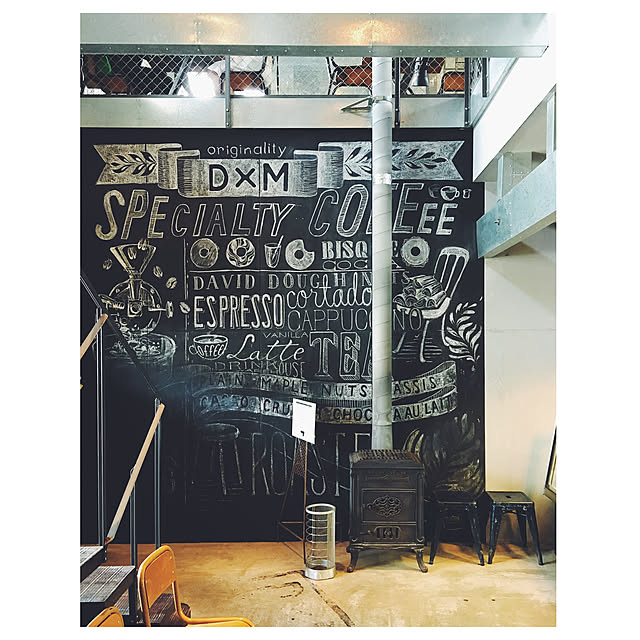 originality
D×M
SPECIALTY COFFEE
BISQUE
DAVID DOUGHNUTS
ESPRESSO cortado
CAPPUCCINO
VANILLA
COFFEE Latte TEA
DRINK
MAPLE NUTS CASSIS
CACAO CRUNCH CHOC AU LAIT